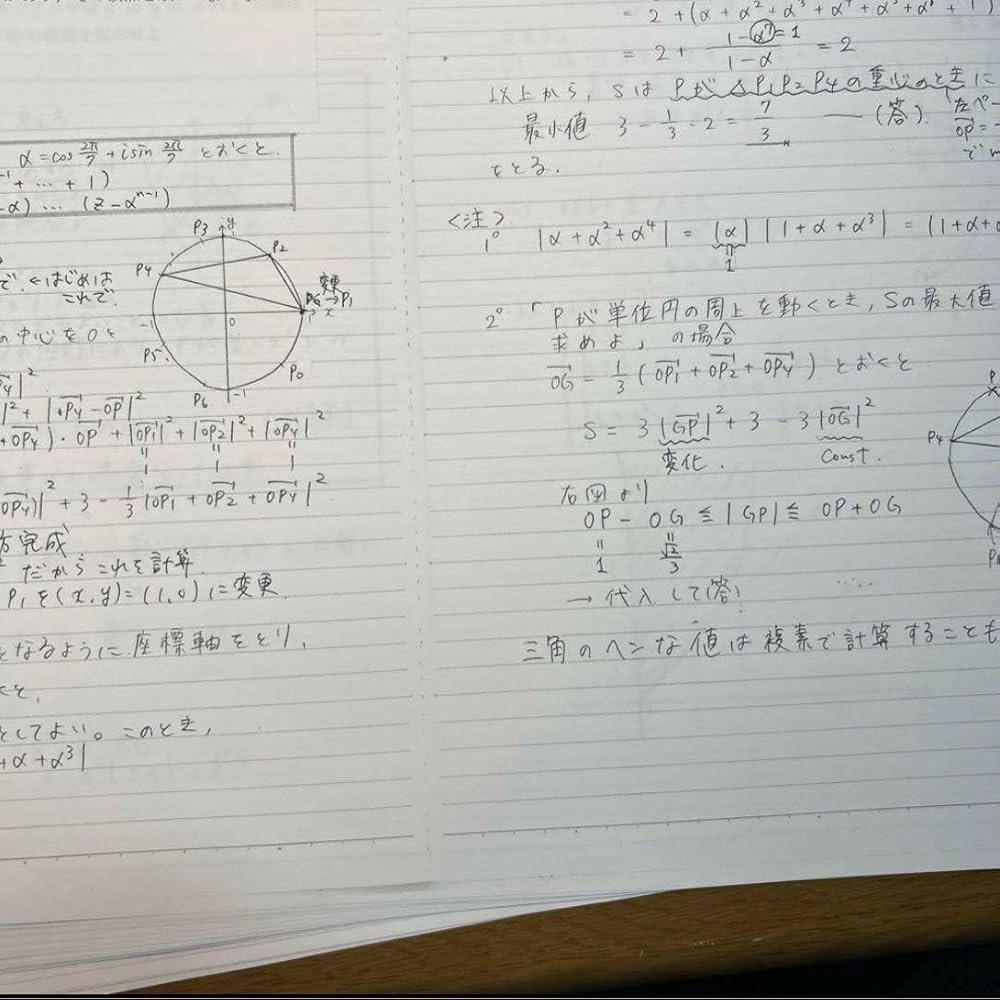 α = cos 2π/7 + i sin 2π/7 とおくと.
+ … + 1)
-α) … (z - α^{n-1})
P3 y P2 P4 変更 → P1 x
-1 0 P5 P0 P6 -1
で. ←はじめは
これで.
の中心をOと
|^2 + |OP4 - OP|^2
+ OP4)・OP + |OP1|^2 + |OP2|^2 + |OP4|^2
1 1 1
OP4)|^2 + 3 - 1/3 |OP1 + OP2 + OP4|^2
完成
だからこれを計算.
P1を(x,y)=(1,0)に変更.
となるように座標軸をとり,
としてよい。このとき,
+ α + α^3|
= 2 + (α + α^2 + α^3 + α^4 + α^5 + α^6 + 1)
= 2 + (1 - α^7)/(1 - α) = 2
=1
以上から, Sは Pが△P1P2P4の重心のときに
最小値 3 - 1/3・2 = 7/3 ―― (答).
をとる.
左ペー
OP =
<注>
1° |α + α^2 + α^4| = |α| |1 + α + α^3| = (1 + α +
1
2° 「Pが単位円の周上を動くとき, Sの最大値
求めよ」の場合
OG = 1/3 (OP1 + OP2 + OP4) とおくと
S = 3|GP|^2 + 3 - 3|OG|^2
変化. Const.
右図より
OP - OG ≦ |GP| ≦ OP + OG
1 √2/3
→ 代入して(答).
P4
三角のヘンな値は複素で計算することも